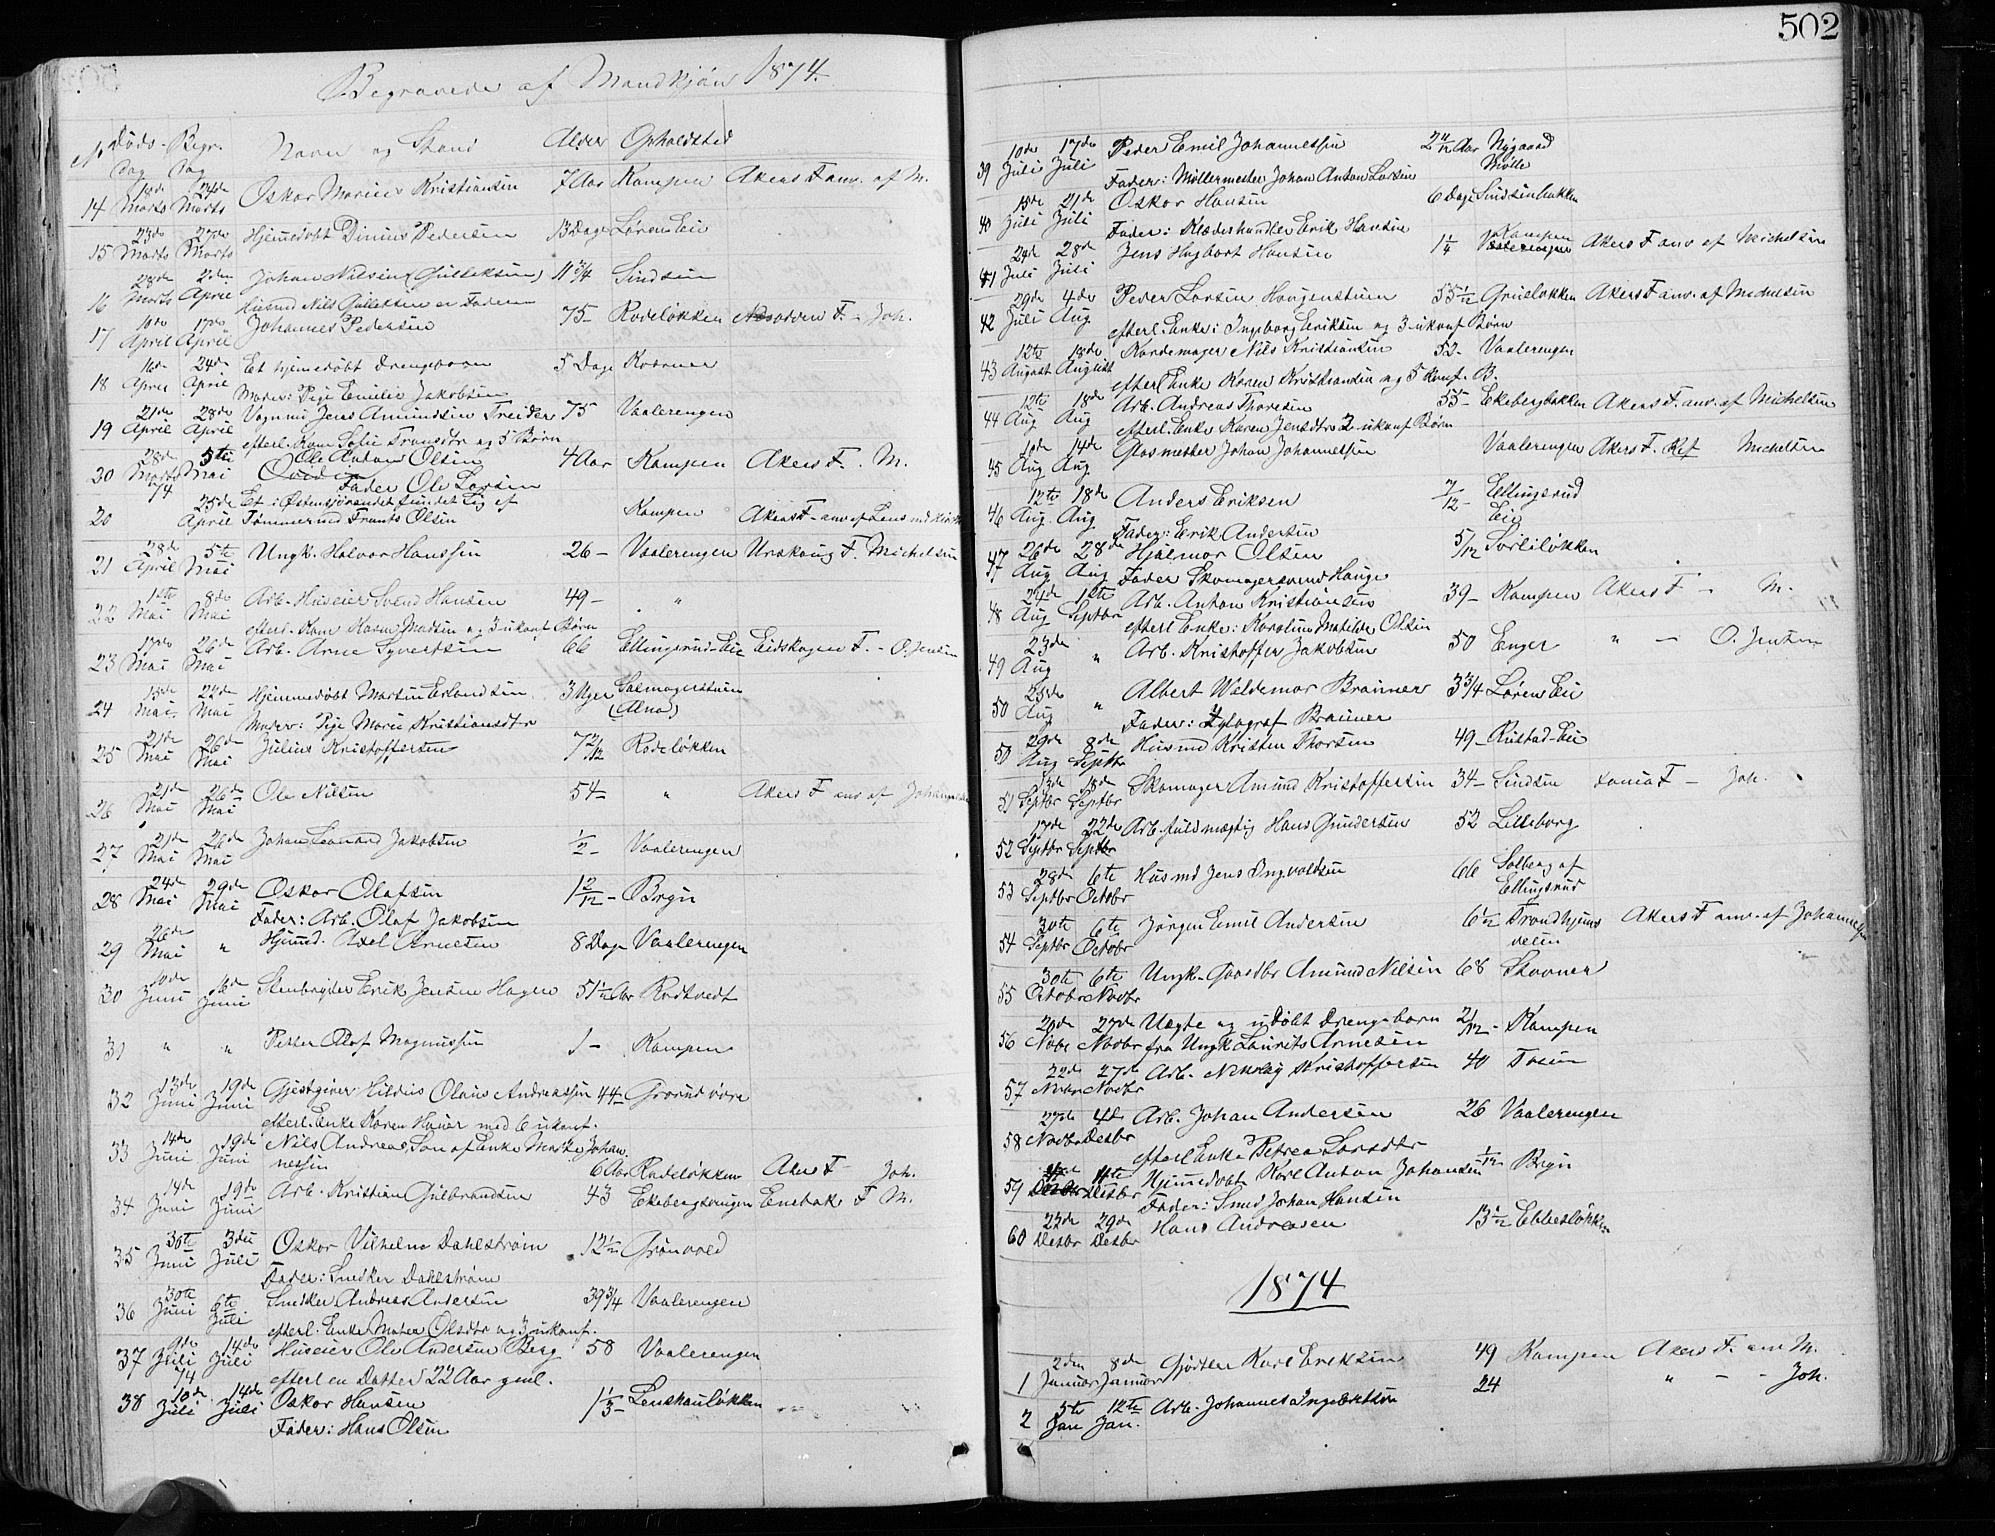 502
Begravede af Mandkjøn 1874.
No Døds- dag Begr. dag Navn og Stand Alder Opholdsted
14 Marts 24de Marts Oskar Marius Kristiansen 7 Aar Kampen Akers F. anv. af M.
15 23de Marts 27de Marts Hjemmedøbt Pedersen 13 Dage Løren Eie
16 28de Marts April Johan Nilsen (Gulleksen) 11 3/4 Sinsen
Husmd Nils Gulleksen er Faderen
17 10de April 17de April Johannes Pedersen 75 Rodeløkken F. - Joh.
18 16de April 24de April Et hjemmedøbt Drengebarn 5 Dage Kværner
Moder: Pige Emilie Jakobsen
19 21de April 28de April Vognmd Jens Amundsen Treider 75 Vaalerengen
efterl. Kone Sofie Fransdtr og 5 Børn
20 28de Marts 74 5te Mai Ole Anton Olsen 4 Aar Kampen Akers F. M.
Fader Ole Larsen
20 25de April Et i Østensjøvandet fundet Lig af
Tømmermd Frants Olsen Kampen Akers F. anv. af
21 28de April 5te Mai Ungk. Halvor Hanssen 26 Vaalerengen Urskoug F. Michelsen
22 1ste Mai 8de Mai Arb. Huseier Svend Hansen 49 "
efterl. Kone Karen Madsen og 3 ukonf Børn
23 17de Mai 26de Mai Arb. Arne Syvertsen 66 Ellingsrud-Eie Eidskogen F. - O. Jensen
24 Mai 22de Mai Hjemmedøbt Martin Erlandsen 3 Uger Salmagerstuen
(Alna)
Moder: Pige Marie Kristiansdtr
25 21de Mai 26de Mai Julius Kristoffersen 7 2/12 Rodeløkken
26 21de Mai 26de Mai Ole Nilsen 54 " Akers F anv af Johannesen
27 21de Mai 26de Mai Johan Leonard Jakobsen 1/2 Vaalerengen
28 24de Mai 29de Mai Oskar Olafsen 1 2/12 Bryn
Fader: Arb. Olaf Jakobsen
29 26de Mai " Hjemmd. Axel Arnesen 8 Dage Vaalerengen
30 10de Juni 16de Juni Stenbryder Erik Jensen Hagen 51 1/2 Aar Rødtvedt
31 " " Petter Olaf Magnussen 1 - Kampen
32 13de Juni 19de Juni Gjestgiver Olaus Andreassen 44 Grorud
efterl. Enke Karen med 6 ukonf.
33 14de Juni 19de Juni Nils Andreas, Søn af Enke Marthe Johan
nessen 6 Aar Rodeløkken Akers F Joh.
34 14de Juni 19de Juni Arb. Kristian Gulbrandsen 43 Ekebergskrugen Enebak F M.
35 30te Juni 3die Juli Oskar Vilhelm Dahlstrøm 12 1/2 Grønvold
Fader: Snedker Dahlstrøm
36 30te Juni 6te Juli Snedker Andreas Andersen 39 3/4 Vaalerengen
efterl. Enke Maren Olsdtr og 3 ukonf.
37 9de Juli 74 14de Juli Huseier Ole Andersen Berg 58 Vaalerengen
efterl en Datter 22 Aar gml.
38 10de Juli 14de Juli Oskar Hansen 1 1/3 Lenshauløkken
Fader: Hans Olsen
39 10de Juli 17de Juli Peder Emil Johannessen 2 11/12 Aar Nygaard
Mølle
Fader: Møllermester Johan Anton Larsen
40 15de Juli 21de Juli Oskar Hansen 6 Dage Sindsenbakken
Fader: Klædeshandler Erik Hansen
41 24de Juli 28de Juli Jens Hagbart Hansen 1 1/4 Kampen Akers F anv af Michelsen
42 29de Juli 4de Aug Peder Larsen Haugenstuen 55 1/2 Grueløkken Akers F anv. af Michelsen
efterl. Enke: Ingeborg Eriksen og 3 ukonf Børn
43 12te August 18de August Kardemager Nils Kristiansen 52 Vaalerengen
efterl Enke Karen Kristiansen og 5 konf. B.
44 12te Aug 18de Aug Arb. Andreas Thoresen 55 Ekebergbakken Akers F. anv. af Michelsen
efterl. Enke Karen Jensdtr 2 ukonf Børn
45 10de Aug 14de Aug Glasmester Johan Johannessen Vaalerengen Akers F. Michelsen
46 12te Aug 18de Aug Anders Eriksen 7/12 Ellingsrud
Eie
Fader: Erik Andersen
47 26de Aug 28de Aug Hjalmar Olsen 5/12 Sorliløkken
Fader Skomagersvend Hauge
48 24de Aug 1ste Septbr Arb. Anton Kristiansen 39 Kampen Akers F - M.
efterl Enke: Karoline Matilde Olsen
49 23de Aug " Arb. Kristoffer Jakobsen 50 Enger " - O. Jensen
50 25de Aug " Albert Waldemar Brauner 3 3/4 Løren Eie
Fader: Xylograf Brauner
50 29de Aug 8de Septbr Husmd Kristen Thorsen 49 Rustad-Eie
51 13de Septbr 18de Septbr Skomager Amund Kristoffersen 34 Sindsen F - Joh.
52 17de Septbr 22de Septbr Arb. fuldmægtig Hans Gundersen 52 Lilleborg
53 28de Septbr 6te Octobr Husmd Jens Ingvaldsen 66 Solberg af
Ellingsrud
54 30te Septbr 6te Octobr Jørgen Emil Andersen 6 1/2 Trondhjems
veien Akers F anv. af Johannessen
55 30te Octobr 6te Novbr Ungk. Gaardbr Amund Nilsen 68 Skovner
56 20de Novbr 27de Novbr Uægte og udøbt Drengebarn 2/12 Kampen
fra Ungk Laurits Arnesen
57 22de Novbr 27de Novbr Arb. Nikolay Kristoffersen 40 Tosen
58 27de Novbr 4de Desbr Arb. Johan Andersen 26 Vaalerengen
efterl Enke Petrea Larsdtr
59 11te Desbr Hjemmedøbt Karl Anton Johansen 1/12 Bryn
Fader: Smed Johan Hansen
60 22de Desbr 29de Desbr Hans Andreasen 13 1/2 Ebbesløkken
1874
1 2den Januar 8de Januar Gjørtler Karl Eriksen 49 Kampen Akers F. anv M.
2 5te Jan 12te Jan. Arb. Johannes Ingebretsen 24 " - - Joh.